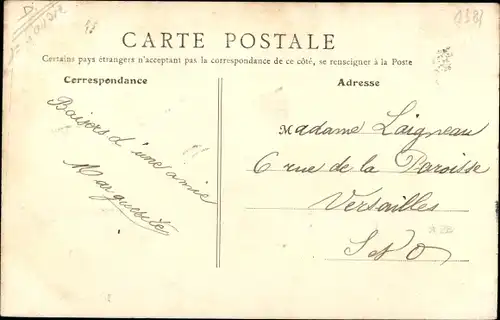 CARTE POSTALE
Certains pays étrangers n'acceptant pas la correspondance de ce côté, se renseigner à la Poste
Correspondance
Adresse
Baisers d'une amie
Marguerite
Madame Laigneau
6 rue de la Paroisse
Versailles
S et O